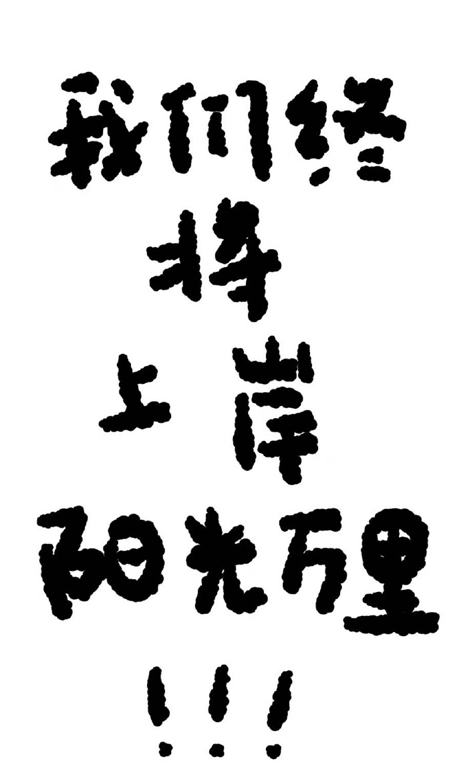 我们终
将
上岸
阳光万里
!!!